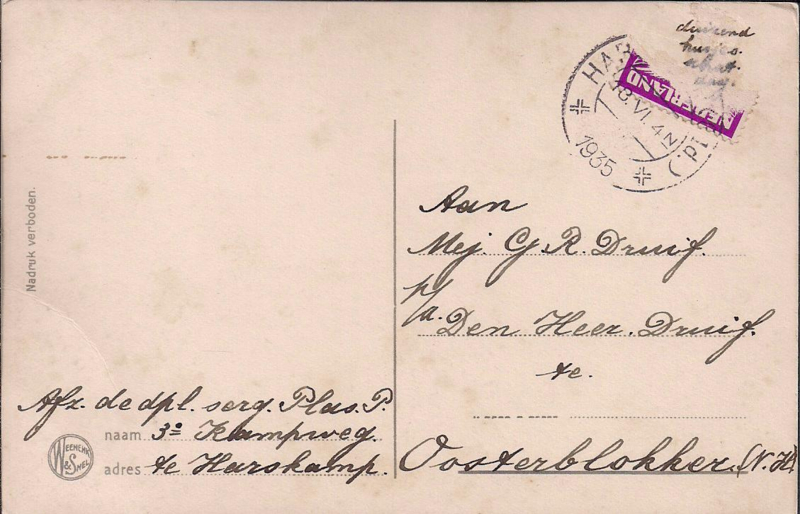 duizend
kusjes
schat
dag.
HAR
13.VI.4N
1935
(Pld.)
NEDERLAND
Aan
Mej. G. R. Druif.
p/a. Den Heer. Druif.
te.
Oosterblokker. (N.H)
Nadruk verboden.
Afz. de dpl. serg. Plas. P.
naam 3e Kampweg
adres te Harskamp.
WEENENK & SNEL